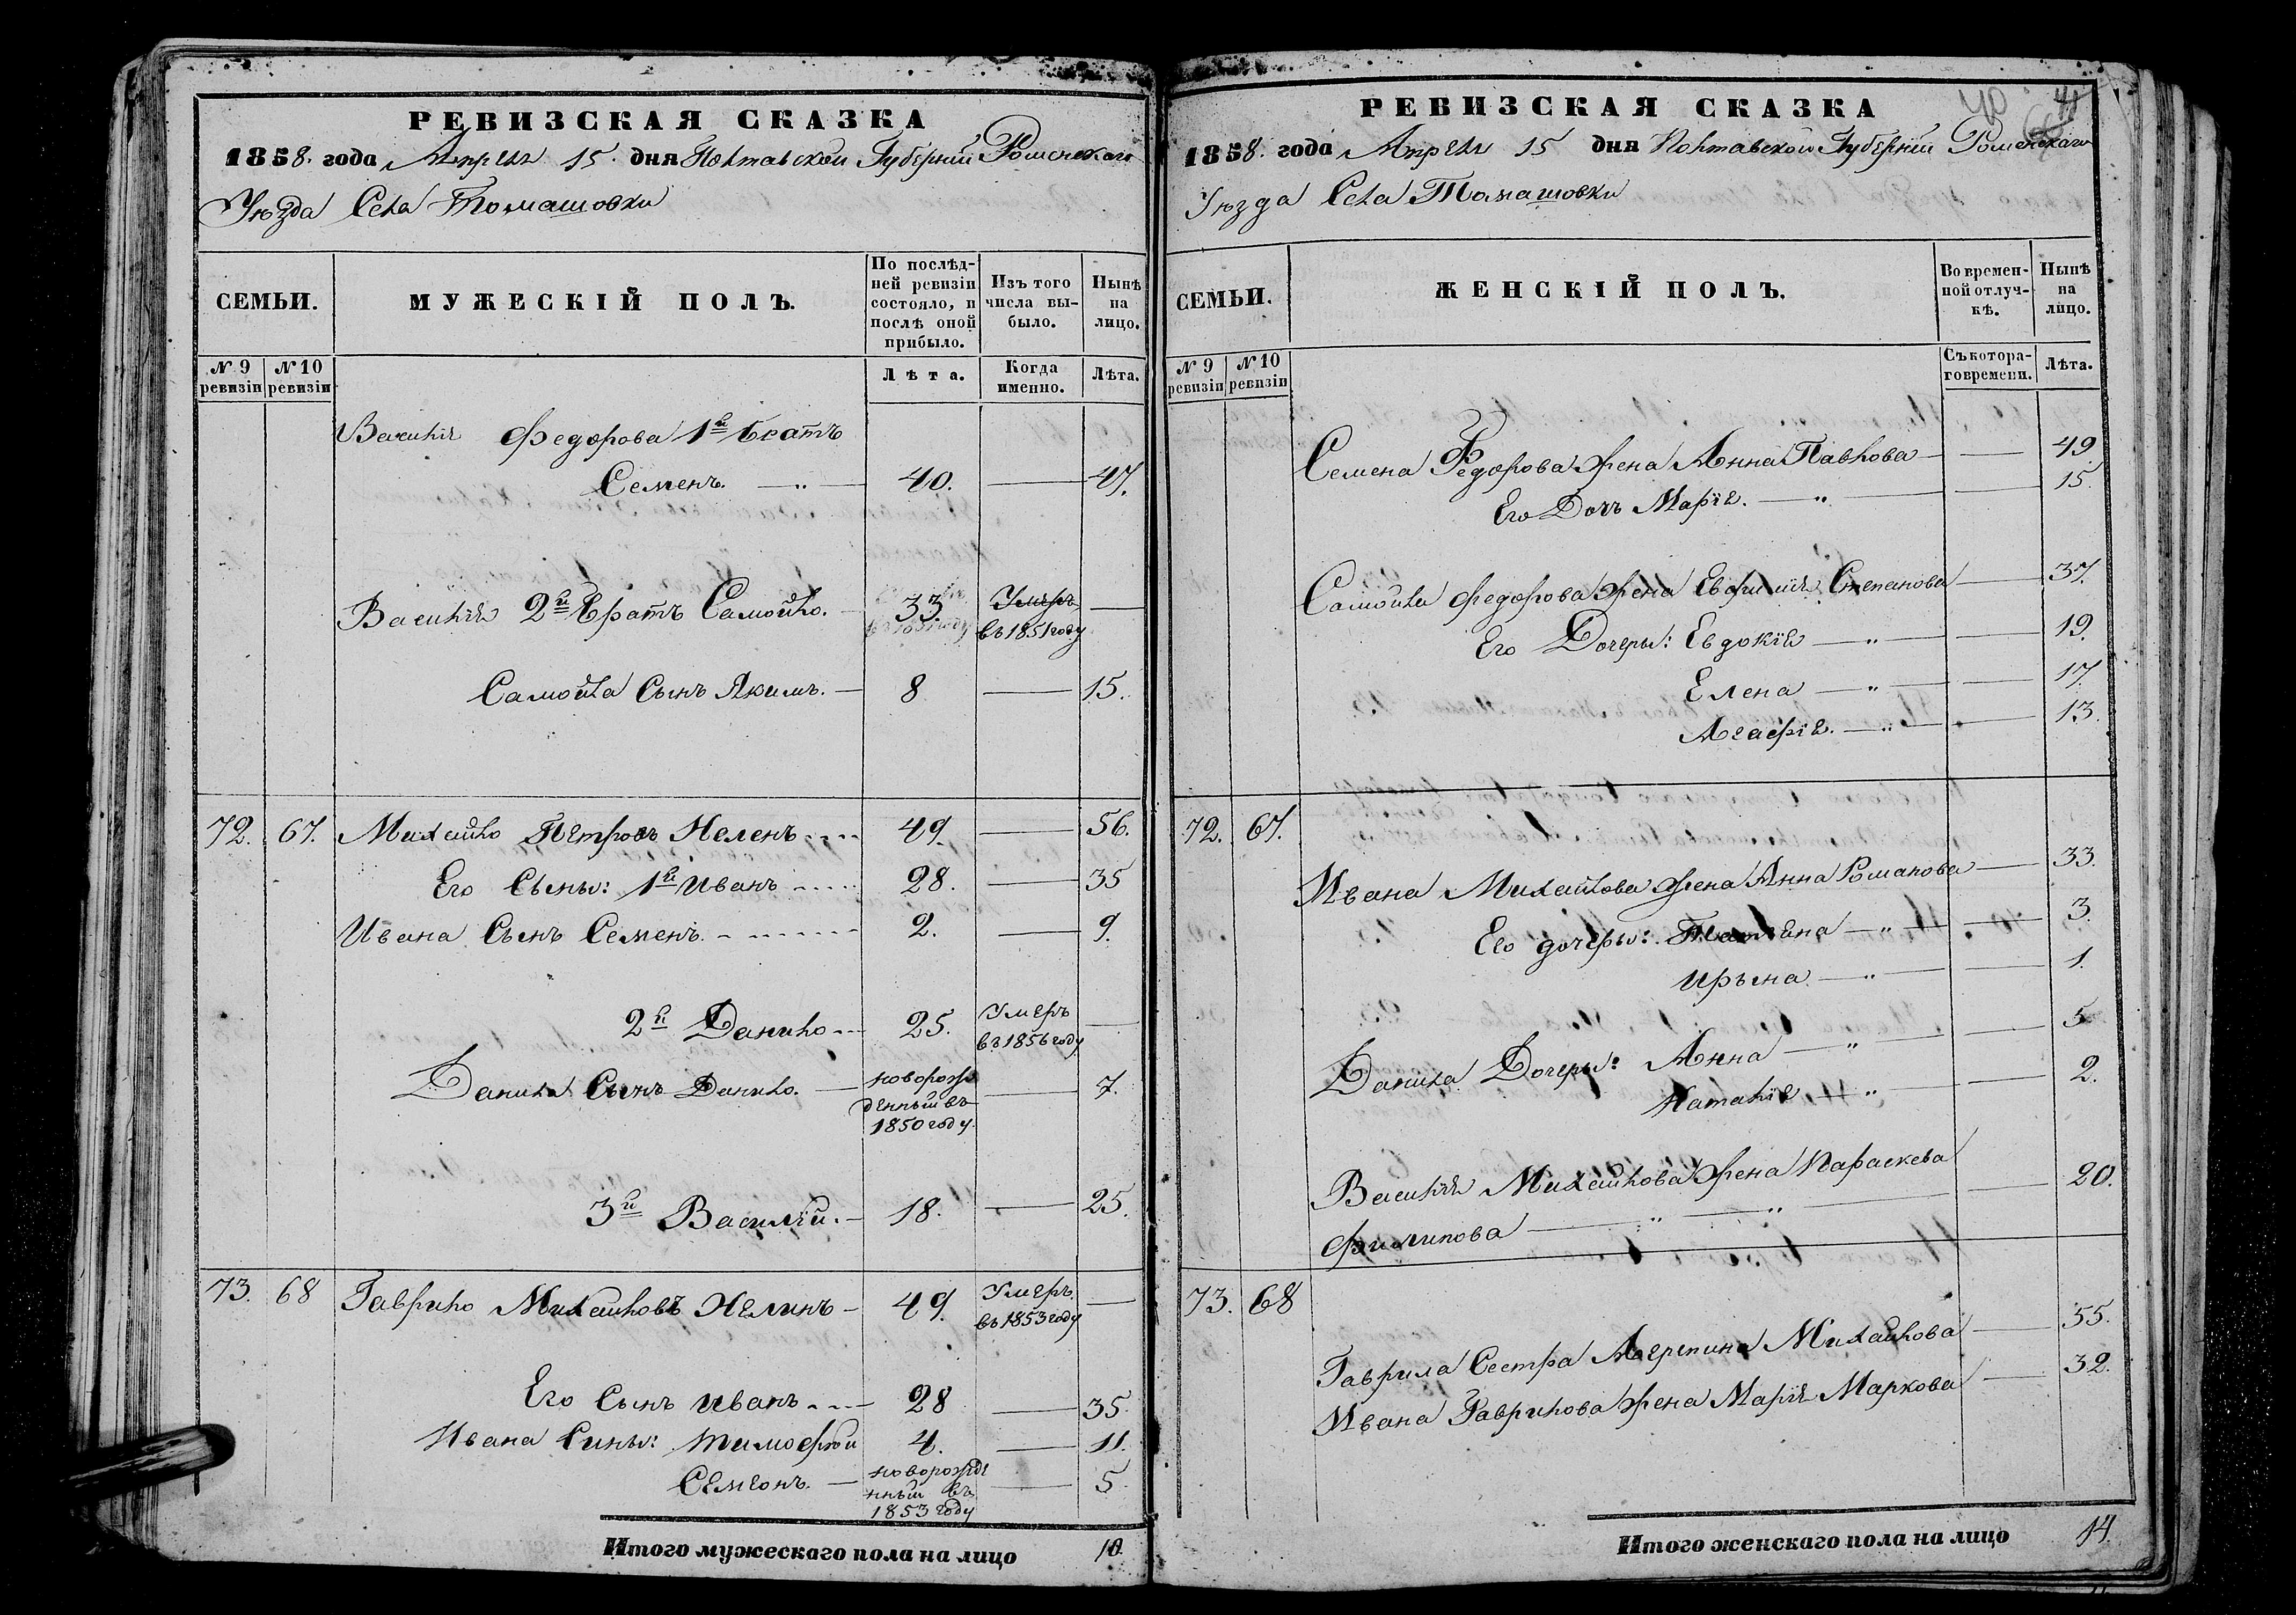 РЕВИЗСКАЯ СКАЗКА
1858. года Апреля 15. дня Полтавской Губернии Роменскаго
Уѣзда Села Томашовки
СЕМЬИ.
МУЖЕСКІЙ ПОЛЪ.
По послѣд-
ней ревизіи
состояло, и
послѣ оной
прибыло.
Изъ того
числа вы-
было.
Нынѣ
на
лицо.
№ 9
ревизіи
№ 10
ревизіи
Лѣта.
Когда
именно.
Лѣта.
Василія Федорова 1й братъ
Семенъ. — „ — 40. — 47.
Василія 2й Братъ Самойло. 33. Умеръ въ 1851 году —
Самойла Сынъ Якимъ. — 8 — 15.
72. 67. Михайло Петровъ Неленъ 49. — 56.
Его Сыны: 1й Иванъ 28. — 35
Ивана Сынъ Семенъ. 2. — 9.
2й Данило 25. Умеръ въ 1856 году —
Данила Сынъ Данило. — новорожденный въ 1850 году. — 7.
3й Василій. — 18. — 25.
73. 68 Гаврило Михайловъ Нелинъ — 49. Умеръ въ 1853 году —
Его Сынъ Иванъ 28 — 35.
Ивана Сины: Тимофѣй 4. — 11.
Семіонъ. — новорожденный въ 1853 году — 5.
Итого мужескаго пола на лицо 10.
РЕВИЗСКАЯ СКАЗКА
40 41
1858. года Апреля 15 дня Полтавской Губерній Роменскаго
Уѣзда Села Томашовки
СЕМЬИ.
ЖЕНСКІЙ ПОЛЪ.
Во времен-
ной отлуч-
кѣ.
Нынѣ
на
лицо.
№ 9
ревизіи
№ 10
ревизіи
Съ котора-
го времени.
Лѣта.
Семена Федорова жена Анна Павлова — 49.
Его Дочь Марія. — „ — 15.
Самойла Федорова жена Евфимія Степанова — 37.
Его Дочеры: Евдокія — „ — 19.
Елена — „ — 17.
Агафія. — „ — 13.
72. 67.
Ивана Михайлова жена Анна Романова — 33.
Его дочеры: Татіяна — „ — 3.
Ирына — „ — 1.
Данила Дочеры: Анна — „ — 5
Наталія — „ — 2.
Василія Михайлова жена Параскева
Филипова — „ — „ — 20.
73. 68
Гаврила Сестра Агрепина Михайлова — 55.
Ивана Гаврилова жена Марія Маркова — 32.
Итого женскаго пола на лицо 14.